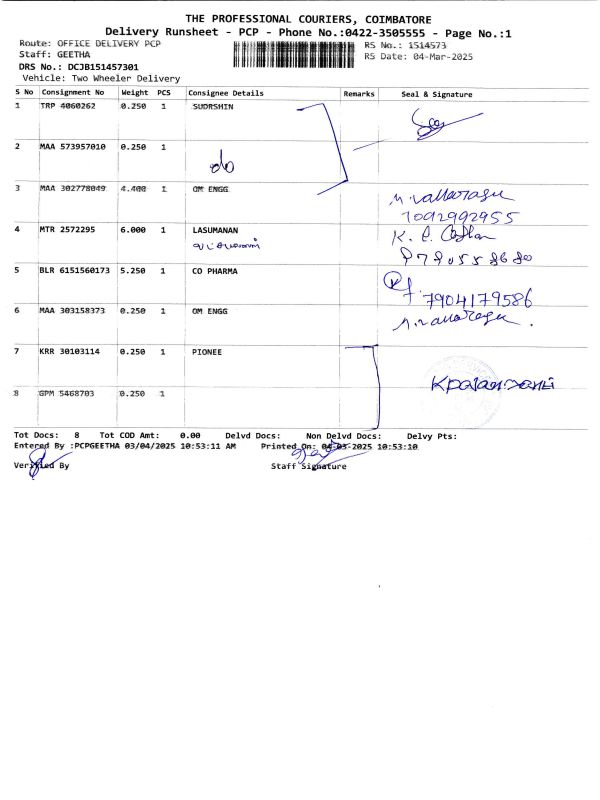 THE PROFESSIONAL COURIERS, COIMBATORE
Delivery Runsheet - PCP - Phone No.:0422-3505555 - Page No.:1
Route: OFFICE DELIVERY PCP RS No.: 1514573
Staff: GEETHA RS Date: 04-Mar-2025
DRS No.: DCJB151457301
Vehicle: Two Wheeler Delivery
S No Consignment No Weight PCS Consignee Details Remarks Seal & Signature
1 TRP 4060262 0.250 1 SUDRSHIN
2 MAA 573957010 0.250 1
3 MAA 302778049 4.400 1 OM ENGG
7092992955
4 MTR 2572295 6.000 1 LASUMANAN
5 BLR 6151560173 5.250 1 CO PHARMA
7904179586
6 MAA 303158373 0.250 1 OM ENGG
7 KRR 30103114 0.250 1 PIONEE
8 GPM 5468703 0.250 1
Tot Docs: 8 Tot COD Amt: 0.00 Delvd Docs: Non Delvd Docs: Delvy Pts:
Entered By :PCPGEETHA 03/04/2025 10:53:11 AM Printed On: 04-03-2025 10:53:10
Verified By Staff Signature